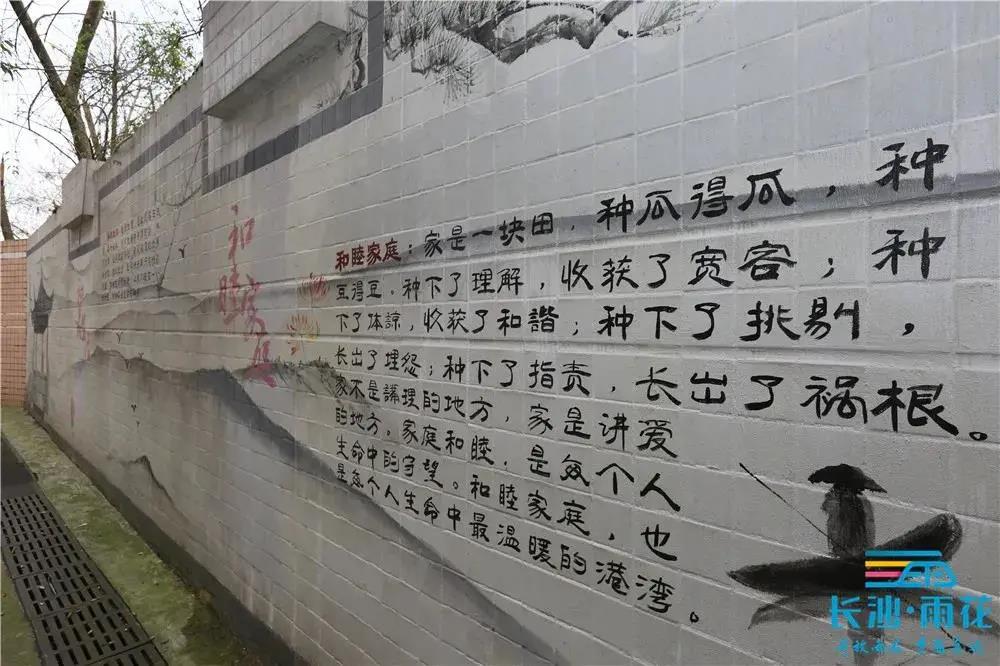 和睦家庭
和睦家庭：家是一块田，种瓜得瓜，种
豆得豆．种下了理解，收获了宽容；种
下了体諒，收获了和諧；种下了挑剔，
长出了埋怨；种下了指责，长出了祸根。
家不是講理的地方，家是讲爱
的地方，家庭和睦，是每个人
生命中的守望。和睦家庭，也
是每个人生命中最温暖的港湾。
长沙·雨花